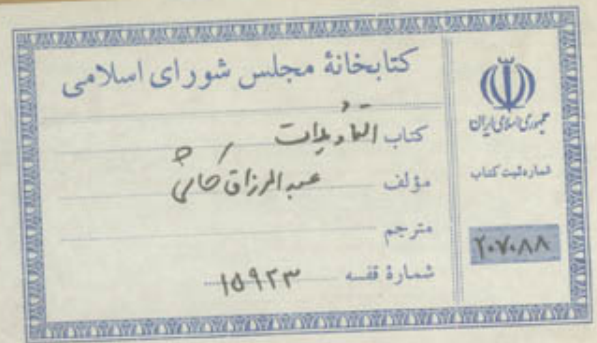 کتابخانهٔ مجلس شورای اسلامی
کتاب التأویلات
مؤلف عبدالرزاق کاشی
مترجم
شمارهٔ قفسه ۱۵۹۲۳
جمهوری اسلامی ایران
شماره ثبت کتاب
۲۰۷۰۸۸